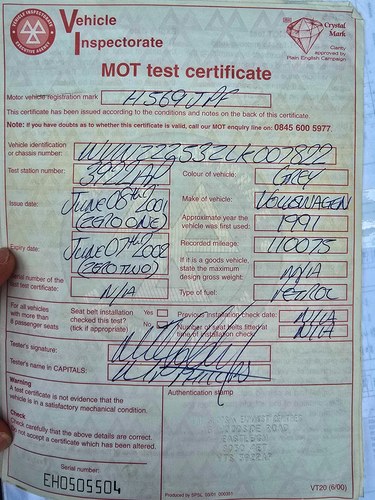 VEHICLE INSPECTORATE
EXECUTIVE AGENCY
Vehicle
Inspectorate
Crystal
Mark
Clarity
approved by
Plain English Campaign
MOT test certificate
Motor vehicle registration mark H569JPF
This certificate has been issued according to the conditions and notes on the back of this certificate
Note: if you have doubts as to whether this certificate is valid, call our MOT enquiry line on: 0845 600 5977.
Vehicle identification
or chassis number:
Test station number:
Colour of vehicle: GREY
Issue date: JUNE 08TH 2001
(ZERO ONE)
Make of vehicle: VOLKSWAGEN
Approximate year the
vehicle was first used: 1991
Expiry date: JUNE 07TH 2002
(ZERO TWO)
Recorded mileage: 110075
If it is a goods vehicle,
state the maximum
design gross weight: N/A
Serial number of the
last test certificate: N/A
Type of fuel: PETROL
For all vehicles
with more than
8 passenger seats
Seat belt installation
checked this test?
(tick if appropriate)
Yes
No
Previous installation check date: N/A
Number of seat belts fitted at
time of installation check: N/A
Tester's signature:
Tester's name in CAPITALS:
Warning
A test certificate is not evidence that the
vehicle is in a satisfactory mechanical condition.
Check
Check carefully that the above details are correct.
Do not accept a certificate which has been altered.
Authentication stamp
Serial number:
EH0505504
VT20 (6/00)